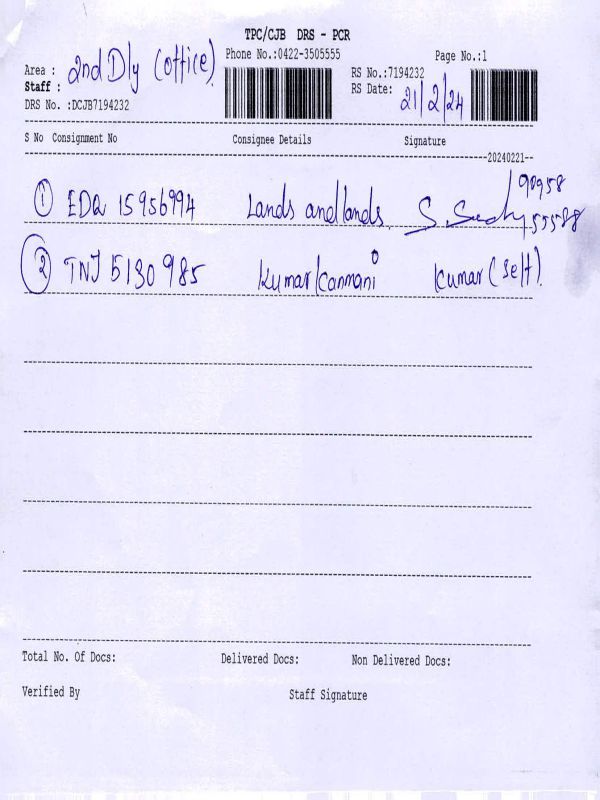 TPC/CJB DRS - PCR
Phone No.:0422-3505555 Page No.:1
Area : 2nd Dly (office) RS No.:7194232
Staff : RS Date: 21/2/24
DRS No. :DCJB7194232
S No Consignment No Consignee Details Signature
20240221
① EDQ 15956994 Lands and lands 90958
55588
② TNJ 5130985 Kumar/Kanmani Kumar (Self)
Total No. Of Docs: Delivered Docs: Non Delivered Docs:
Verified By Staff Signature